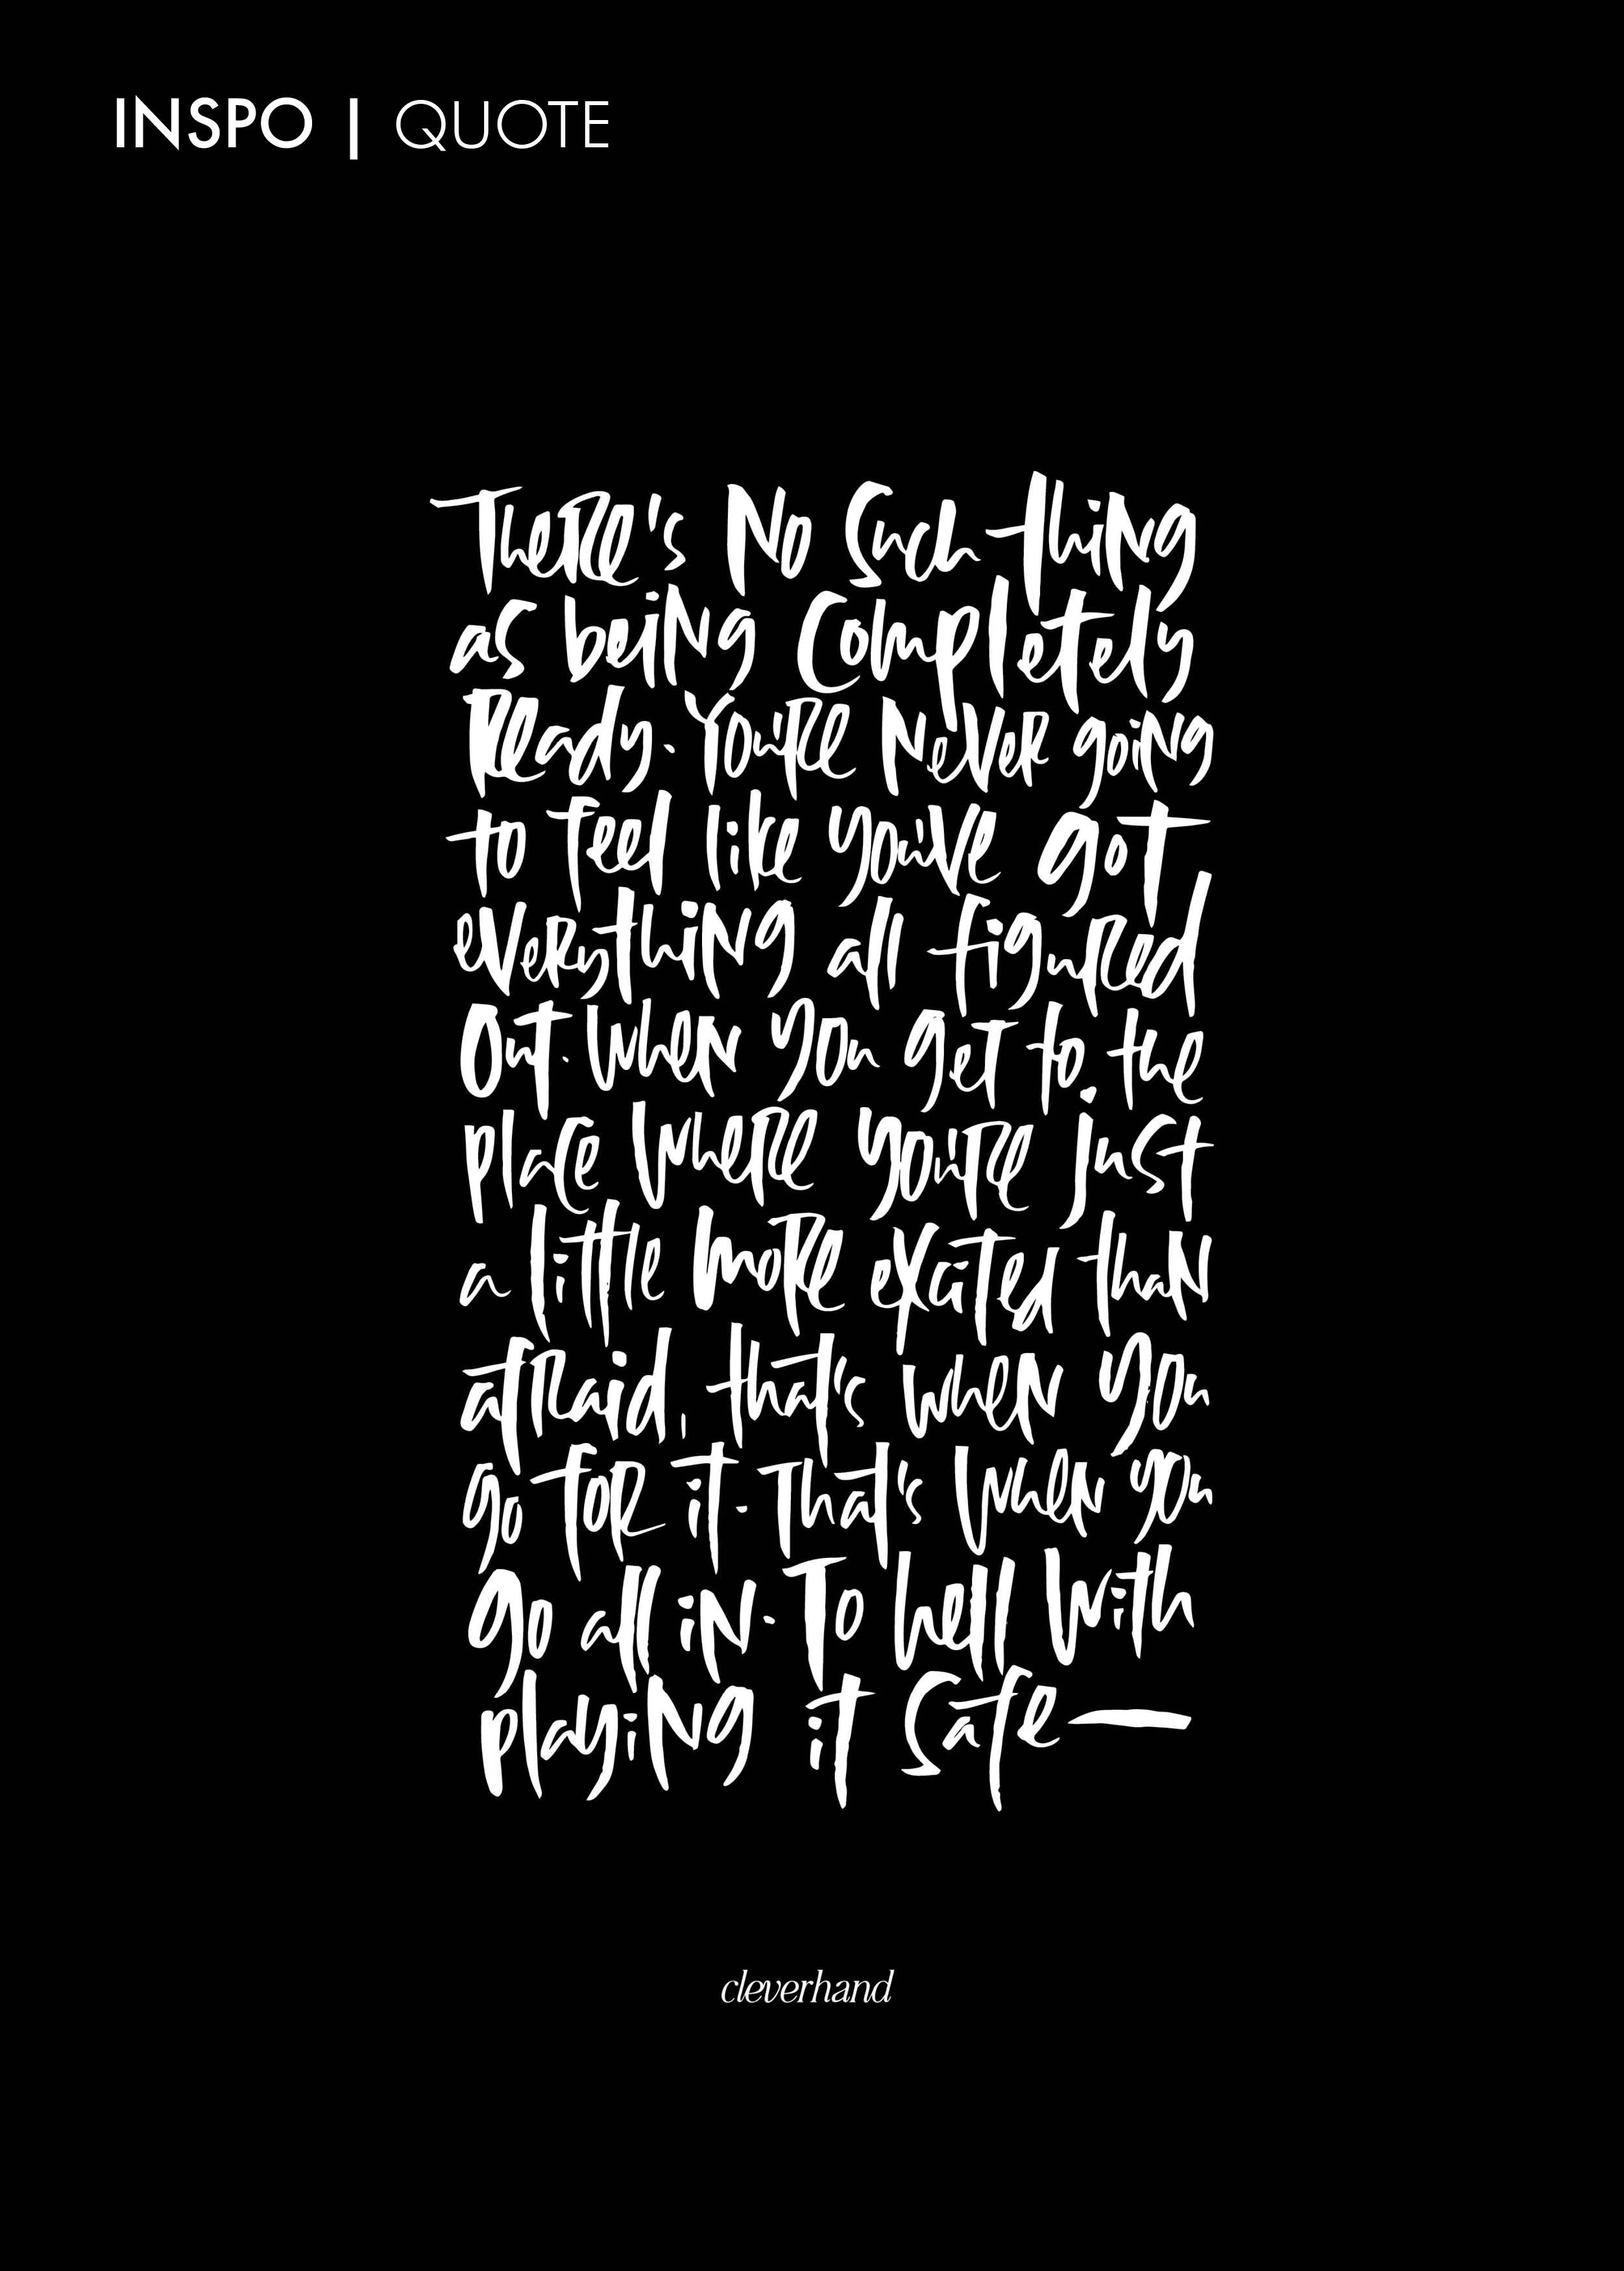 INSPO | QUOTE
There's No Such thing
as being Completely
Ready. You're Never going
to feel like you've got
everything all figured
Out. When you get to the
place where you're just
a little more excited than
afraid, that's when you
go for it. That's when you
go all in. To hell with
playing it Safe—
cleverhand